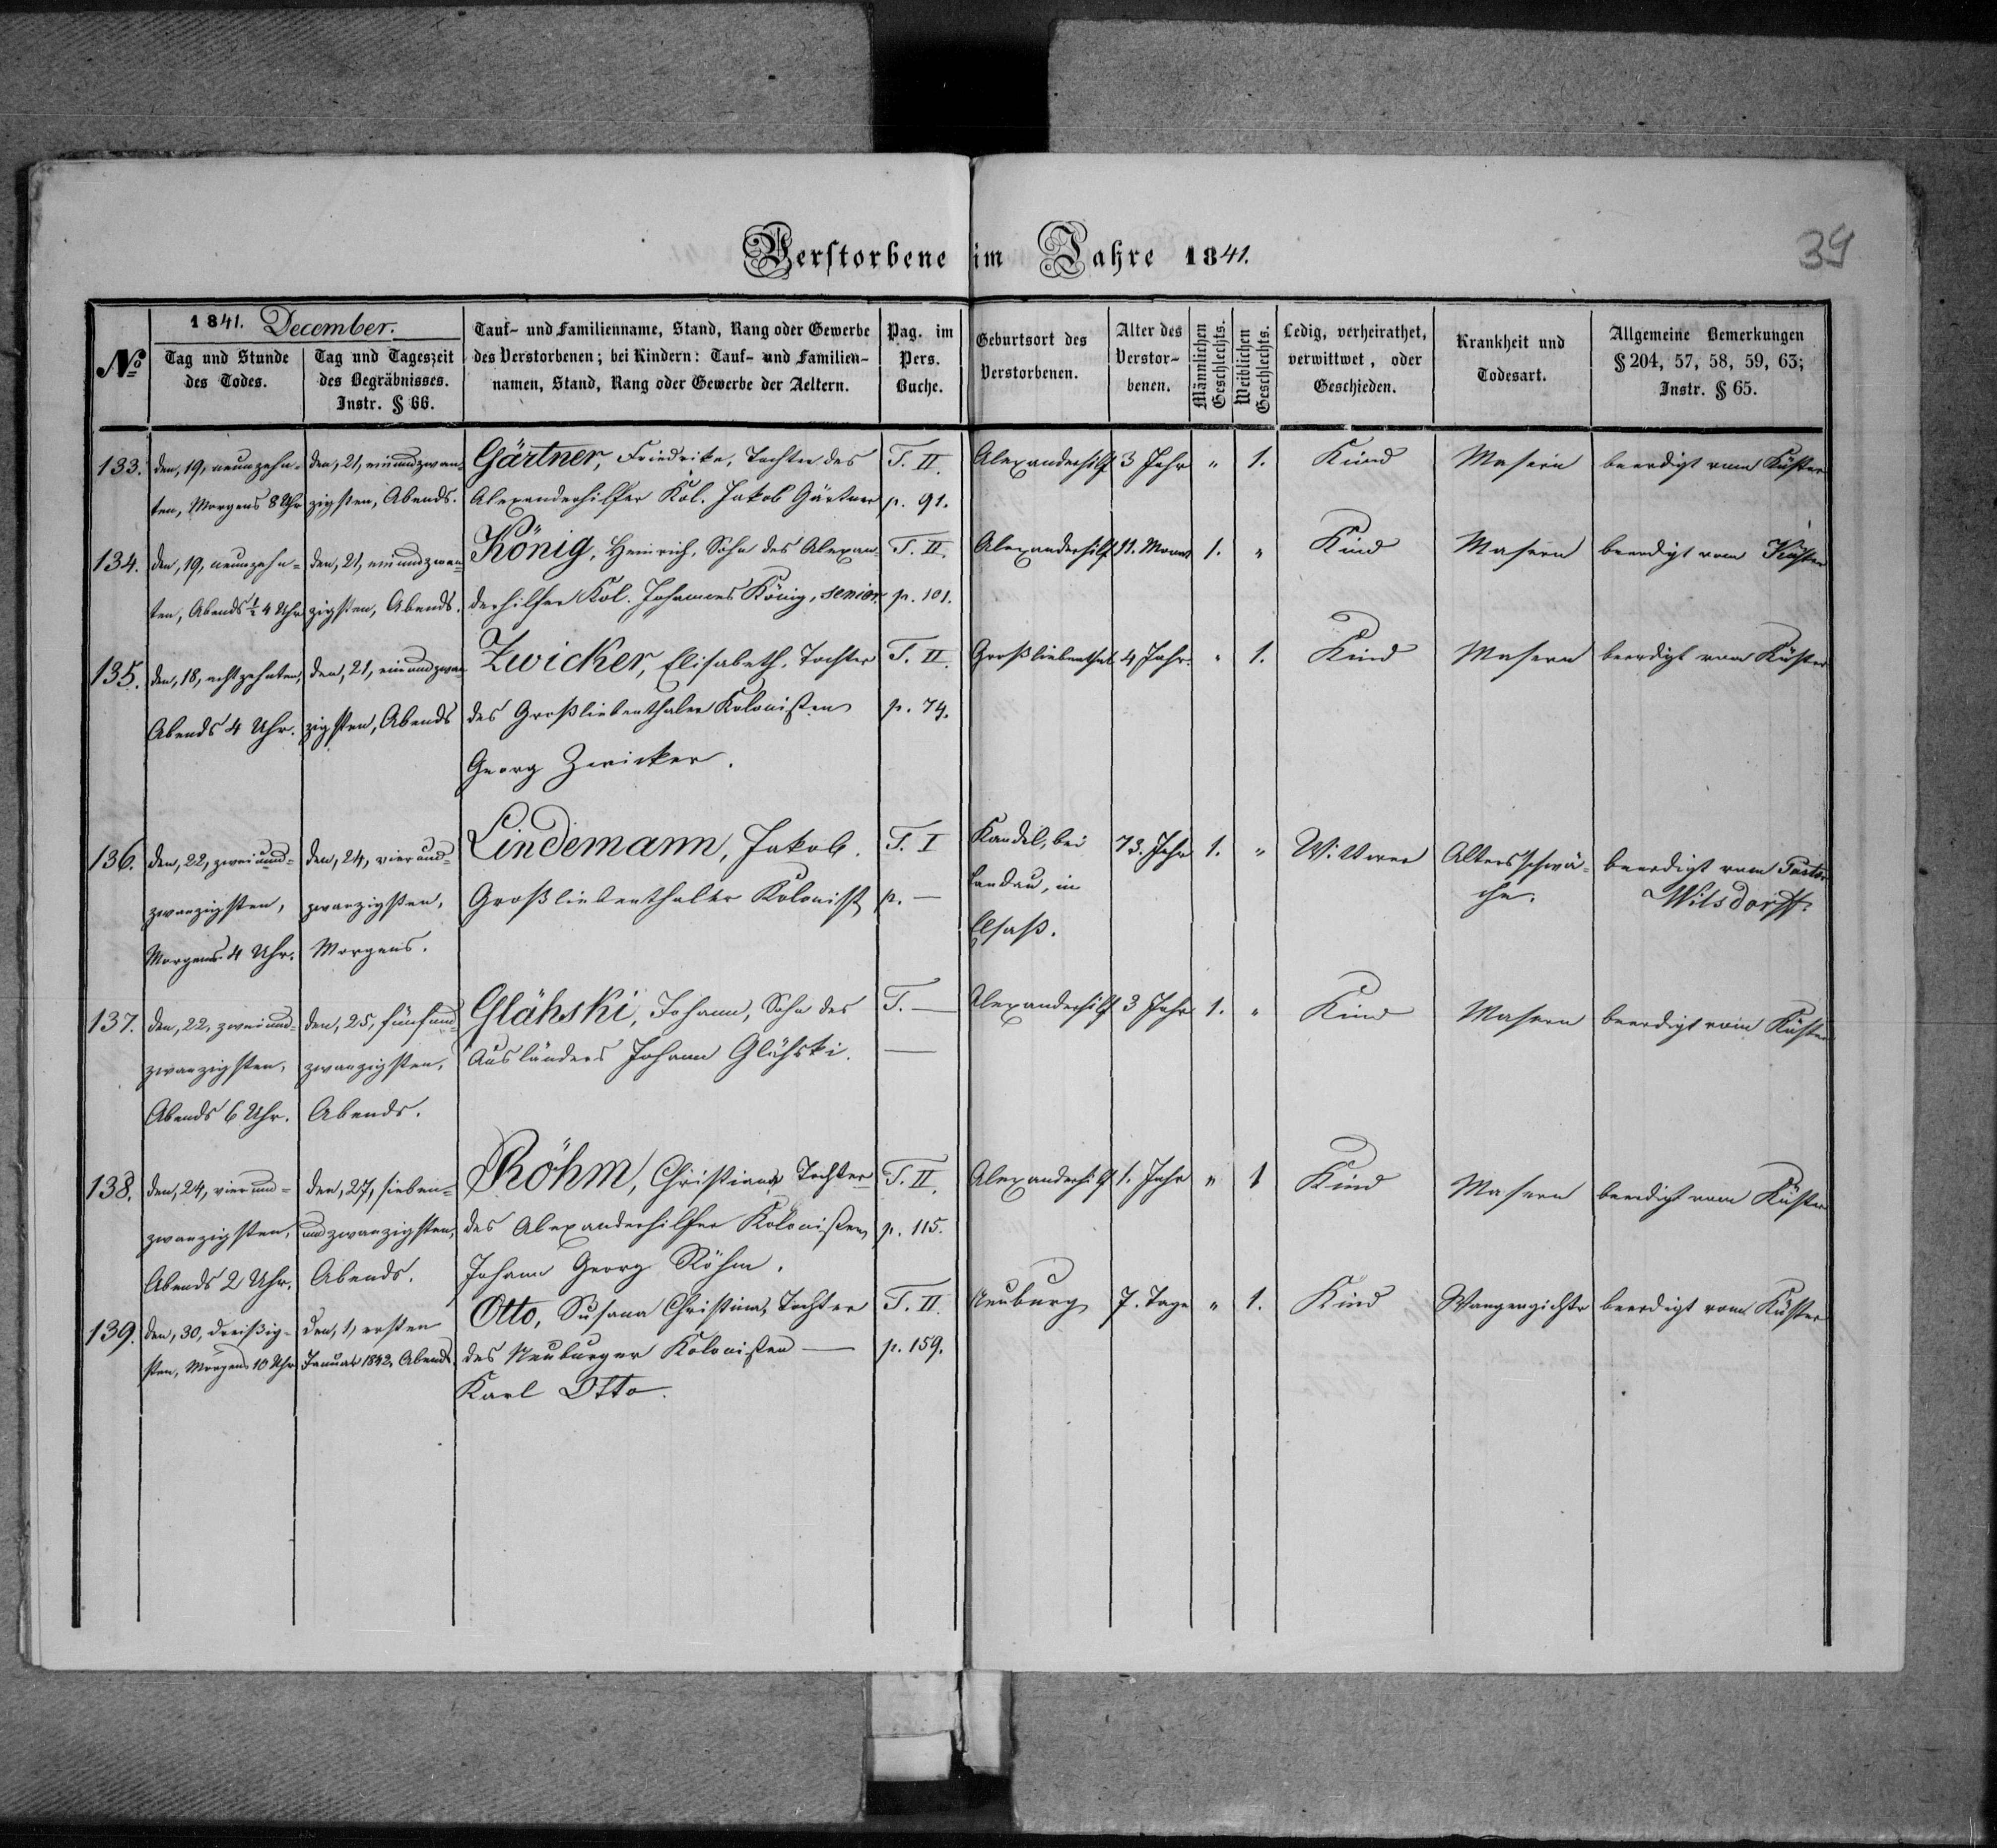 Verstorbene im Jahre 1841.
39
№
1841. December.
Tag und Stunde des Todes.
Tag und Tageszeit des Begräbnisses. Instr. § 66.
Tauf- und Familienname, Stand, Rang oder Gewerbe
des Verstorbenen; bei Kindern: Tauf- und Familien-
namen, Stand, Rang oder Gewerbe der Aeltern.
Pag. im Pers. Buche.
Geburtsort des Verstorbenen.
Alter des Verstor- benen.
Männlichen Geschlechts.
Weiblichen Geschlechts.
Ledig, verheirathet, verwittwet, oder Geschieden.
Krankheit und Todesart.
Allgemeine Bemerkungen § 204, 57, 58, 59, 63; Instr. § 65.
133. den, 19, neunzehn- den, 21, einundzwan- Gärtner, Friedrike, Tochter des T. II. Alexanderhilf 3 Jahr " 1. Kind Masern beerdigt vom Küster
ten, Morgens 8 Uhr zigsten, Abends. Alexanderhilfer Kol. Jakob Gärtner p. 91.
134. den, 19, neunzehn= den, 21, einundzwan= König, Heinrich, Sohn des Alexan- T. II. Alexanderhilf 11. Monat 1. " Kind Masern beerdigt vom Küster
ten, Abends ½ 4 Uhr zigsten, Abends. derhilfer Kol. Johannes König, senior. p. 101.
135. den, 18, achtzehnten, den, 21, einundzwan Zwicker, Elisabeth, Tochter T. II. Großliebenthal 4 Jahr. " 1. Kind Masern beerdigt vom Küster
Abends 4 Uhr. zigsten, Abends des Großliebenthaler Kolonisten p. 74.
Georg Zwicker.
136. den, 22, zweiund= den, 24, vierund= Lindemann, Jakob. T. I Kandel, bei 73. Jahr 1. " Wittwer Altersschwä- beerdigt vom Pastor
zwanzigsten, zwanzigsten, Großliebenthaler Kolonist p. — Landau, in che. Wilsdorff.
Morgens 4 Uhr. Morgens. Elsaß.
137. den, 22, zweiund- den, 25, fünfund= Glähski, Johann, Sohn des T. — Alexanderhilf 3 Jahr 1. " Kind Masern beerdigt vom Küster
zwanzigsten, zwanzigsten, Ausländers Johann Glähski. —
Abends 6 Uhr. Abends.
138. den, 24, vierund= den, 27, sieben= Röhm, Christiana Tochter T. II. Alexanderhilf 1. Jahr " 1 Kind Masern beerdigt vom Küster
zwanzigsten, undzwanzigsten, des Alexanderhilfer Kolonisten p. 115.
Abends 2 Uhr. Abends. Johann Georg Röhm.
139. den, 30, dreißig- den, 1, ersten Otto, Susana Christina, Tochter T. II. Neuburg 7. Tage " 1. Kind beerdigt vom Küster
sten, Morgens 10 Uhr Januar 1842, Abends. des Neuburger Kolonisten — p. 159.
Karl Otto.